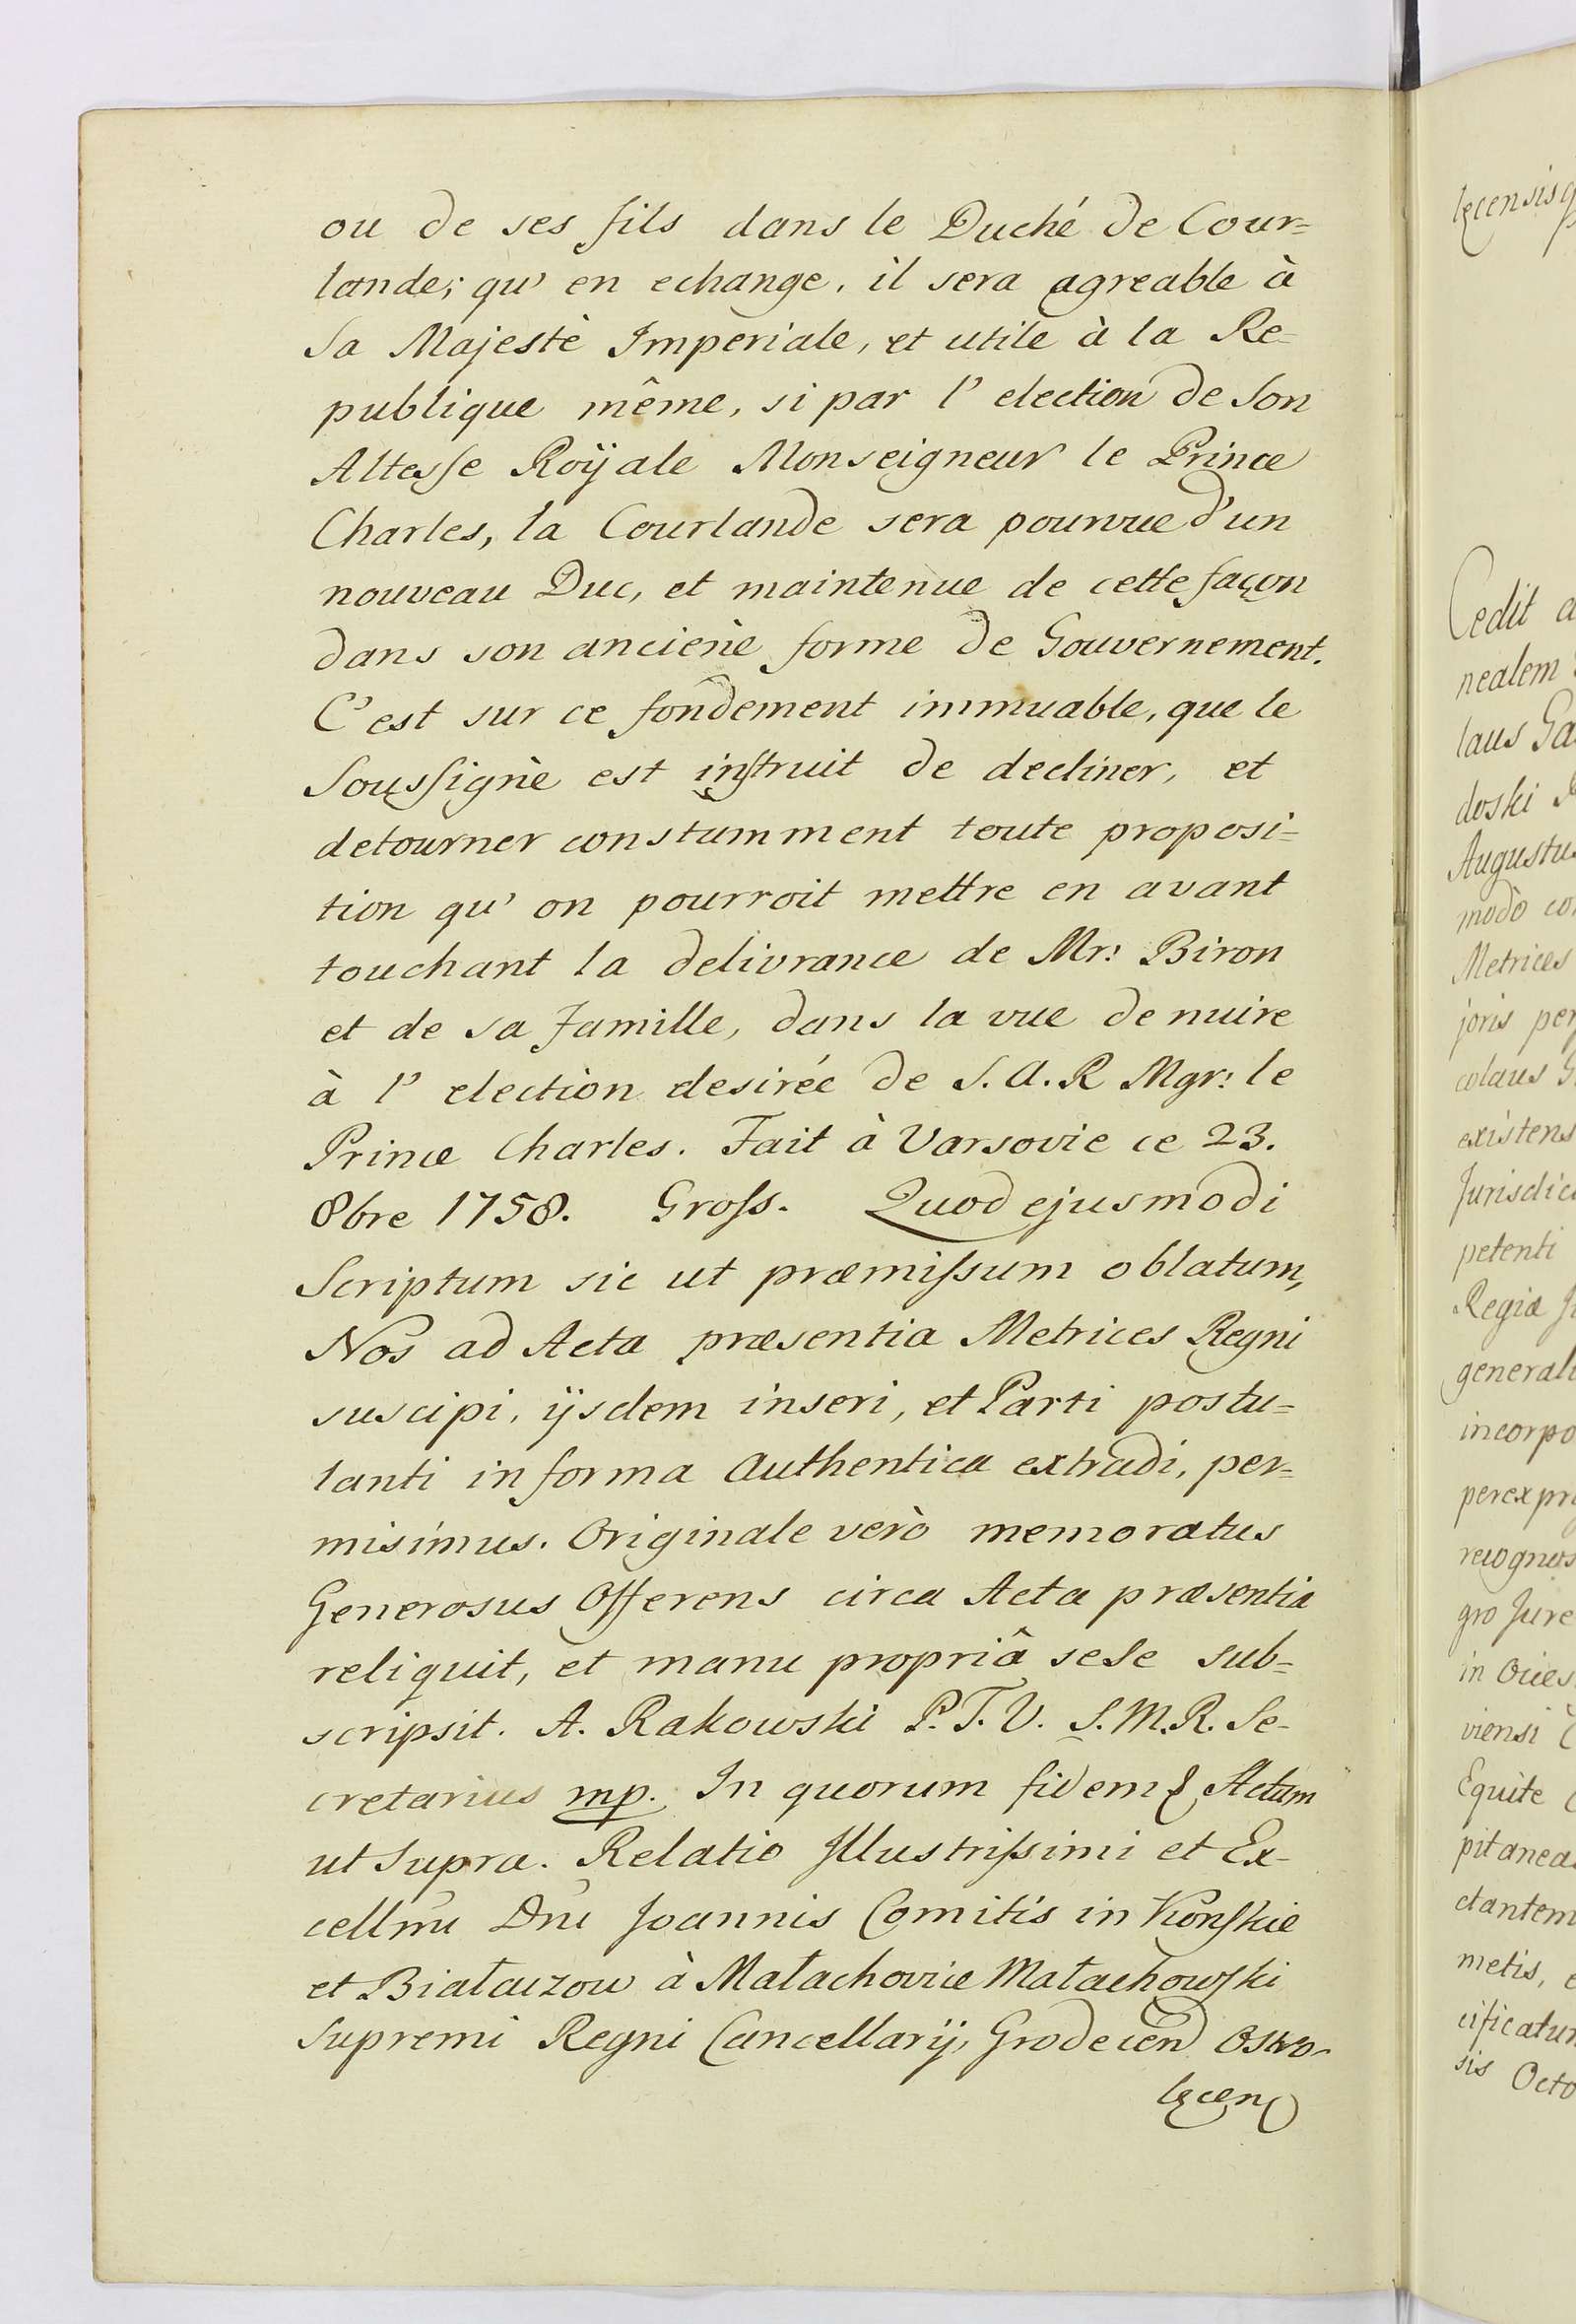 ou de ses fils dans le Duché de Cour=
lande; qu' en echange, il sera agreable à
Sa Majestè Imperiale, et utile à la Re=
publique même, si par l' election de Son
Altesse Roÿale Monseigneur le Prince
Charles, la Courlande sera pourvue d'un
nouveau Duc, et maintenue de cette façon
dans son anciene forme de Gouvernement.
C'est sur ce fondement immuable, que le
Soussignè est instruit de decliner, et
detourner constamment toute proposi=
tion qu' on pourroit mettre en avant
touchant la delivrance de Mr: Biron
et de sa Famille, dans la vue de nuire
à l' election desirée de S. A. R Mgr: le
Prince Charles. Fait à Varsovie ce 23.
8bre 1758. Gross. Quod ejusmodi
Scriptum sic ut præmissum oblatum,
Nos ad Acta præsentia Metrices Regni
suscipi, ijsdem inseri, et Parti postu=
lanti in forma Authentica extradi, per=
misimus. Originale verò memoratus
Generosus Offerens circa Acta præsentia
reliquit, et manu propriâ sese sub=
scripsit. A. Rakowski P. T. V. S. M. R. Se-
cretarius mp. In quorum fidem Actum
ut Supra. Relatio Illustrissimi et Ex-
cellmi Dni Joannis Comitis in Końskie
et Białaczow à Małachovice Małachowski
Supremi Regni Cancellarij, Grodecen Ostro-
lęcen
lęcensis
Cedit a
nealem
laus Ga
doski
Augustu
modò co
Metrices
joris per
colaus G
existens
Jurisdic
petenti
Regiæ
general
incorpo
perexpr
recognos
gro Jure
in
viensi
Equite
pitanea
ctantem
metis,
cificatu
sis Octo